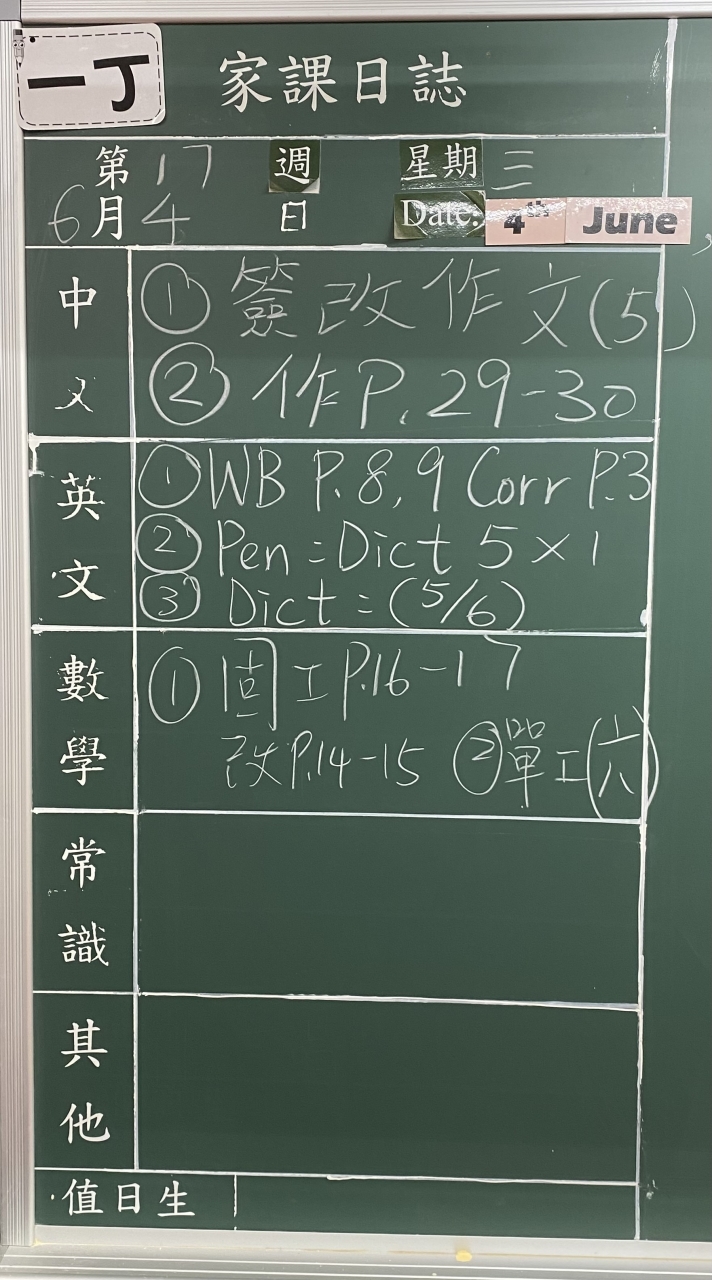 一丁
家課日誌
第 17 週 星期 三
6月 4 日 Date: 4th June
中文
① 簽改作文(5)
② 作P.29-30
英文
① WB P.8,9 Corr P.3
② Pen = Dict 5×1
③ Dict = (5/6)
數學
① 固工P.16-17
改P.14-15 ② 單工(六)
常識
其他
值日生